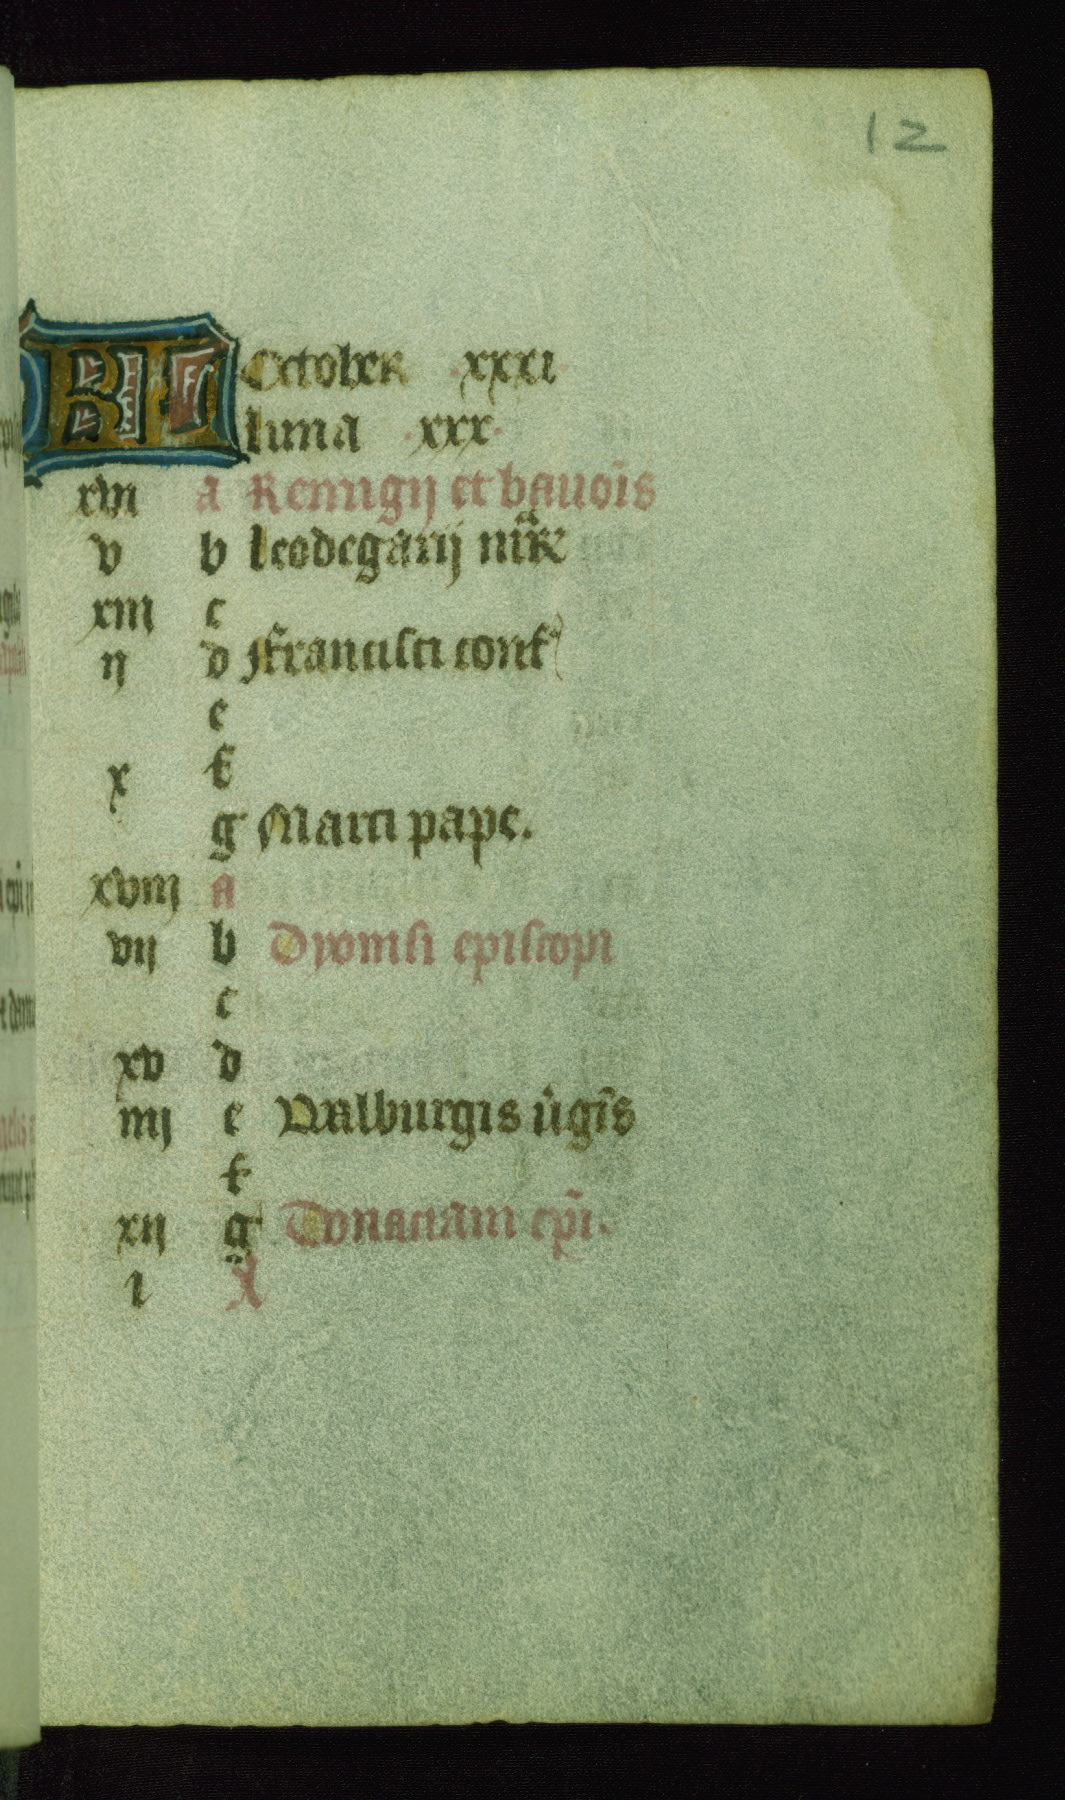 12
KL October xxxi
luna xxx
xvi a Remigij et bauōis
v b leodegarij mr̄
xiii c
ij d Francisci conf
e
x f
g Marci pape.
xviij a
vij b Dyonisi episcopi
c
xv d
iiij e Walburgis ūgīs
f
xij g Donaciani epī.
i A